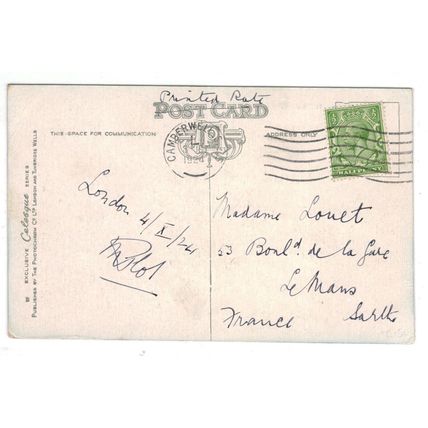 Printed Rate
POST CARD
THIS SPACE FOR COMMUNICATION
ADDRESS ONLY
CAMBERWELL
1924
HALFPENNY
EXCLUSIVE Celesque SERIES
PUBLISHED BY THE PHOTOCHROM CO. LTD LONDON AND TUNBRIDGE WELLS
London
4/X/24
Madame Louet
53 Boul.d de la Gare
Le Mans
Sarthe
France